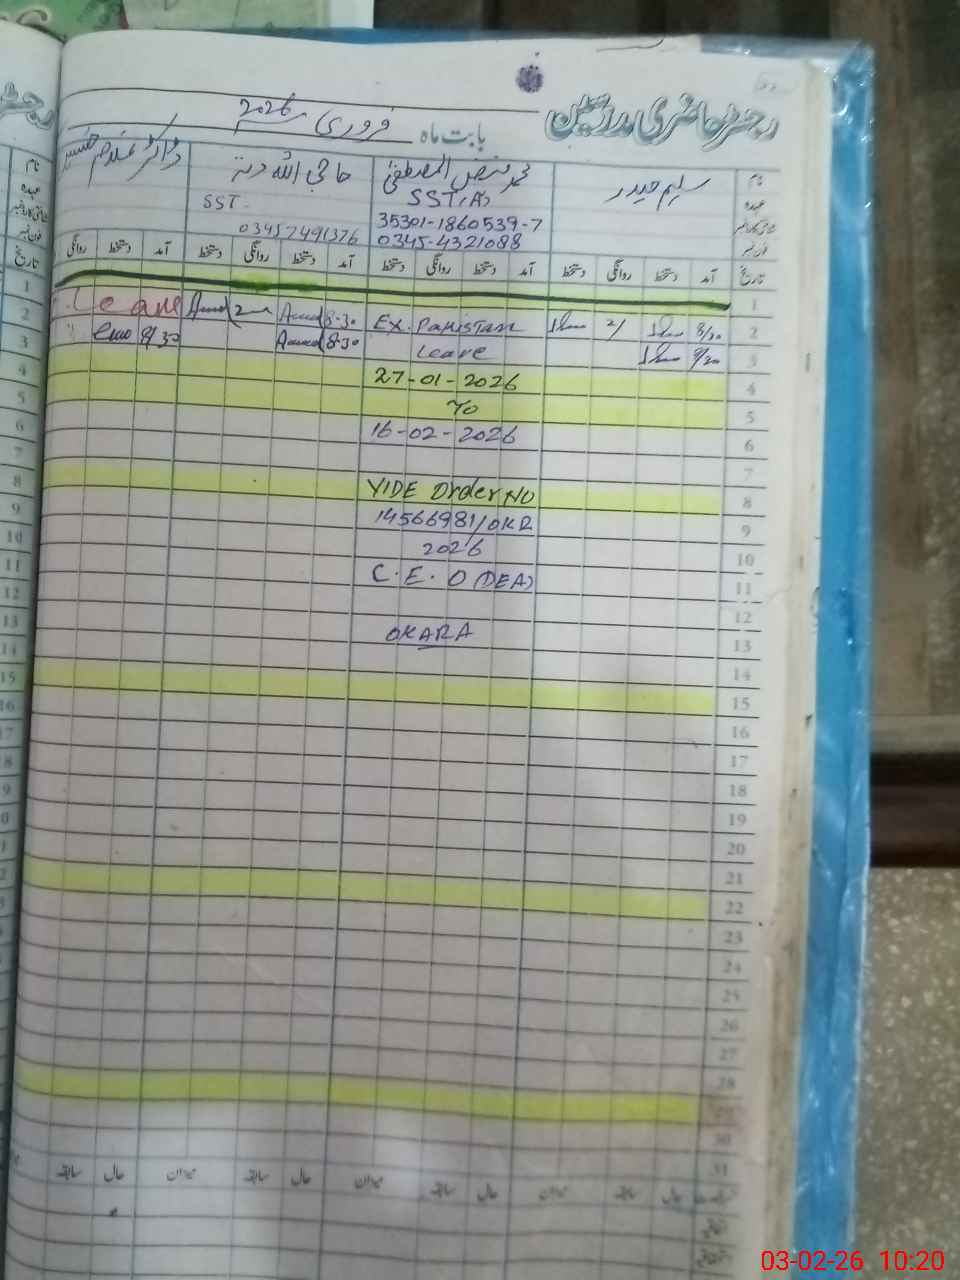 رجسٹر حاضری مدرسین
بابت ماہ فروری 2026
نام سلیم حیدر محمد فیض المصطفیٰ حاجی اللہ دتہ ڈاکٹر غلام
عہدہ SST(A) SST.
شناختی کارڈ نمبر 35301-1860539-7
فون نمبر 0345-4321088 03457491376
تاریخ آمد دستخط روانگی دستخط آمد دستخط روانگی دستخط آمد دستخط روانگی دستخط آمد دستخط روانگی
1
2 8/30 2/ Ex. Pakistan 8-30 2 Leave
3 8/30 Leave 8-30 8/30
4 27-01-2026
5 To
6 16-02-2026
7
8 VIDE Order NO
9 14566981/OKR
10 2026
11 C.E.O (DEA)
12
13 OKARA
14
15
16
17
18
19
20
21
22
23
24
25
26
27
28
30
31
حال سابقہ میزان حال سابقہ میزان حال سابقہ میزان حال سابقہ
03-02-26 10:20